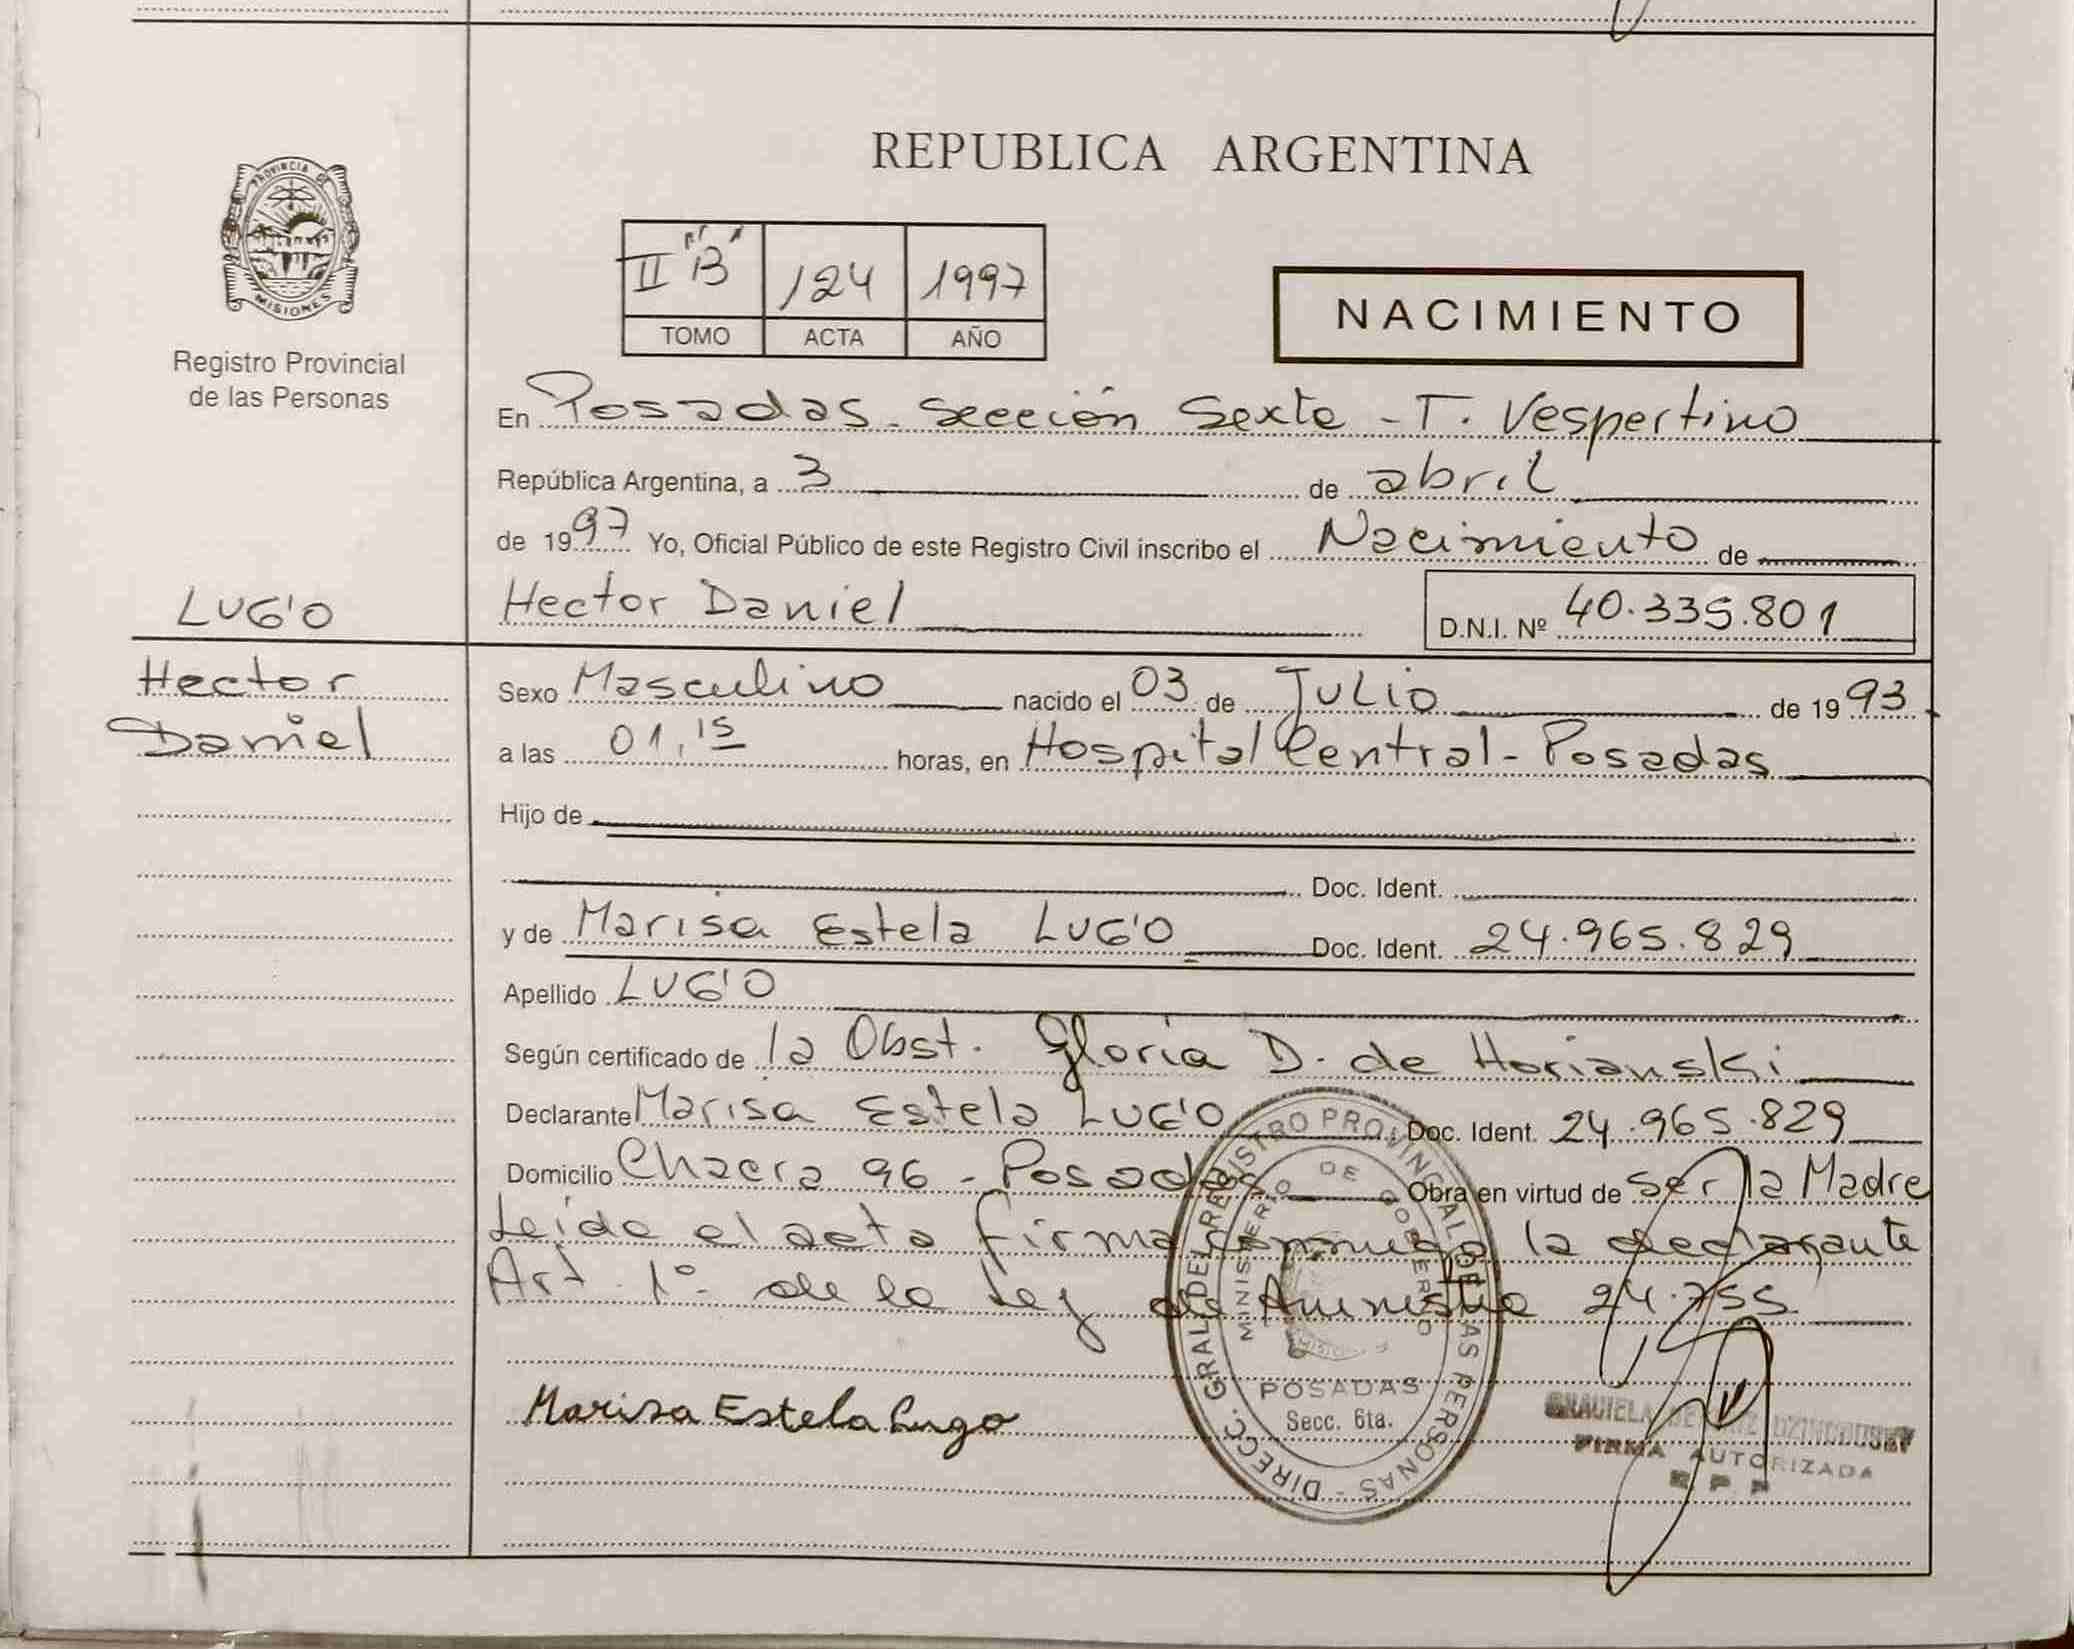 PROVINCIA DE
MISIONES
Registro Provincial
de las Personas
REPUBLICA ARGENTINA
II "B" 124 1997
TOMO ACTA AÑO
NACIMIENTO
En Posadas - Sección Sexta - T. Vespertino
República Argentina, a 3 de abril
de 1997 Yo, Oficial Público de este Registro Civil inscribo el Nacimiento de
LUGO
Hector Daniel D.N.I. Nº 40.335.801
Hector
Daniel
Sexo Masculino nacido el 03 de Julio de 1993
a las 01,15 horas, en Hospital Central - Posadas
Hijo de
Doc. Ident.
y de Marisa Estela LUGO Doc. Ident. 24.965.829
Apellido LUGO
Según certificado de la Obst. Gloria D. de Horianski
Declarante Marisa Estela LUGO Doc. Ident. 24.965.829
Domicilio Chacra 96 - Posadas Obra en virtud de ser la Madre
Leida el acta firma conmigo la declarante
Art. 1º de la Ley de Amnistia 24.755
Marisa Estela Lugo
DIRECC. GRAL. DEL REGISTRO PROVINCIAL DE LAS PERSONAS
MINISTERIO DE GOBIERNO
POSADAS
Secc. 6ta.
FIRMA AUTORIZADA